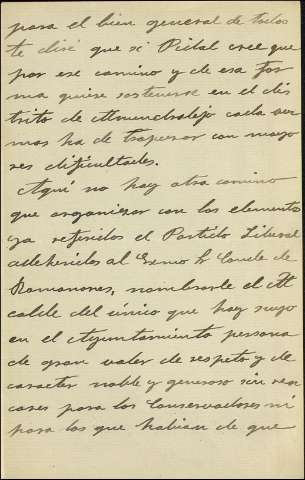 para el bien general de todos
te diré que si Pidal cree que
por ese camino y de esa for
ma quiere sostenerse en el dis
trito de Almendralejo cada vez
mas ha de tropezar con mayo
res dificultades.
Aquí no hay otro camino
que organizar con los elementos
ya referidos el Partido Liberal
adheridos al Exmo Sr Conde de
Romanones, nombrarle el Al
calde del único que hay suyo
en el Ayuntamiento persona
de gran valer de respeto y de
caracter noble y generoso sin ren
cores para los Conservadores ni
para los que habian de que